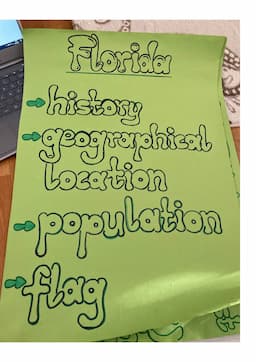 Florida
history
geographical
location
population
flag